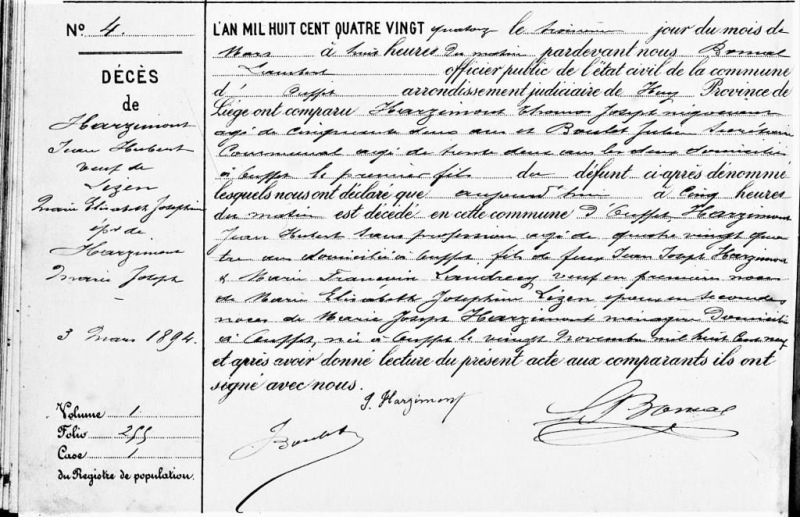 No 4.
DÉCÈS
de
Harzimont
Jean Hubert
veuf de
Lizen
Marie Elisabeth Josephine
ép. de
Harzimont
Marie Joseph
3 Mars 1894.
Volume 1
Folio 255
Case 1
du Registre de population.
L'AN MIL HUIT CENT QUATRE VINGT quatorze le troisième jour du mois de
Mars à huit heures du matin pardevant nous Bomal
Lambert officier public de l'état civil de la commune
d' Ouffet arrondissement judiciaire de Huy Province de
Liége ont comparu Harzimont Thomas Joseph
agé de cinquante deux ans et Boulet Julien Secrétaire
Communal agé de trente deux ans les deux domiciliés
à Ouffet le premier fils du défunt ci-après dénommé
lesquels nous ont déclaré que aujourd'hui à cinq heures
du matin est décédé en cette commune d'Ouffet Harzimont
Jean Hubert sans profession agé de quatre vingt qua
tre ans domicilié à Ouffet, fils de feux Jean Joseph Harzimont
& Marie Françoise Landrecy veuf en premières noces
de Marie Elisabeth Josephine Lizen époux en secondes
noces de Marie Joseph Harzimont ménagère domiciliée
à Ouffet, née à Ouffet le vingt Novembre mil huit cent
et après avoir donné lecture du présent acte aux comparants ils ont
signé avec nous.
Harzimont
J Boulet
L Bomal